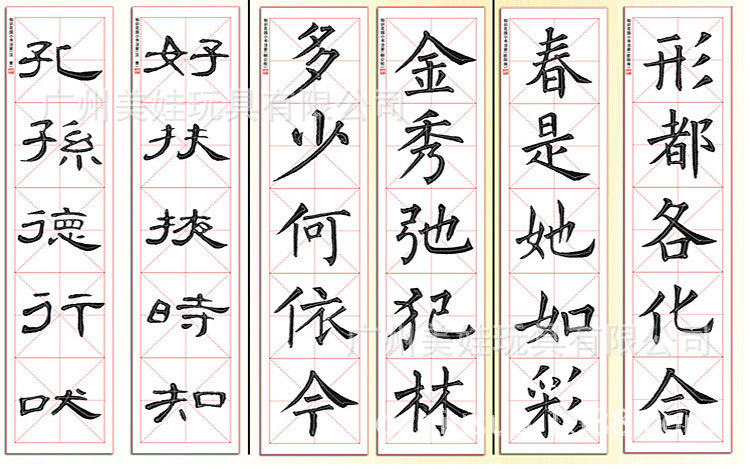 孔孫德行吠
好扶挾時知
多少何依今
金秀弛犯林
春是她如彩
形都各化合
广州美娃玩具有限公司
广州美娃玩具有限公司